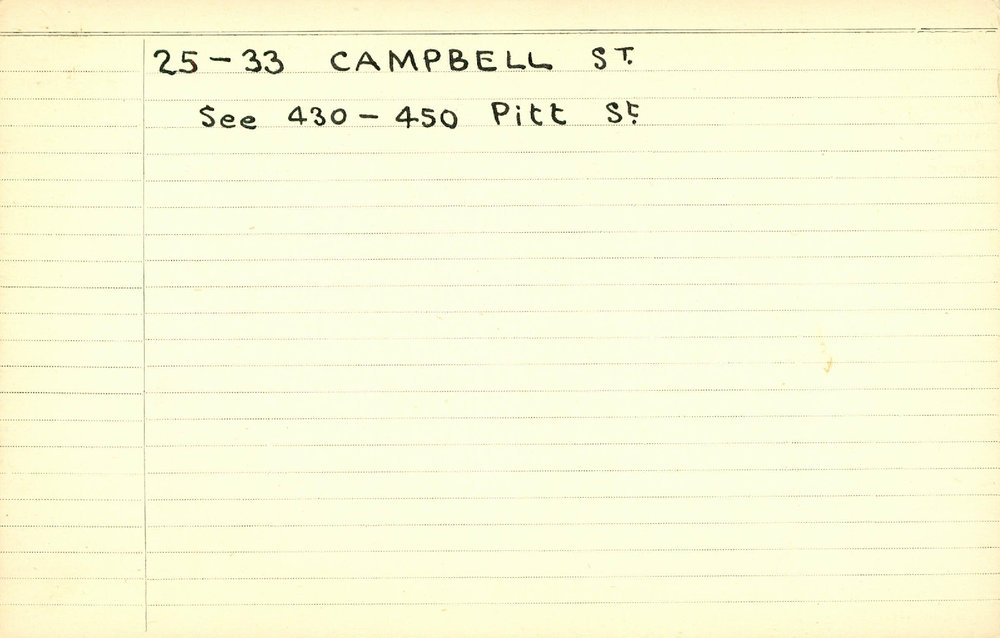 25-33 CAMPBELL ST.
See 430-450 Pitt St.